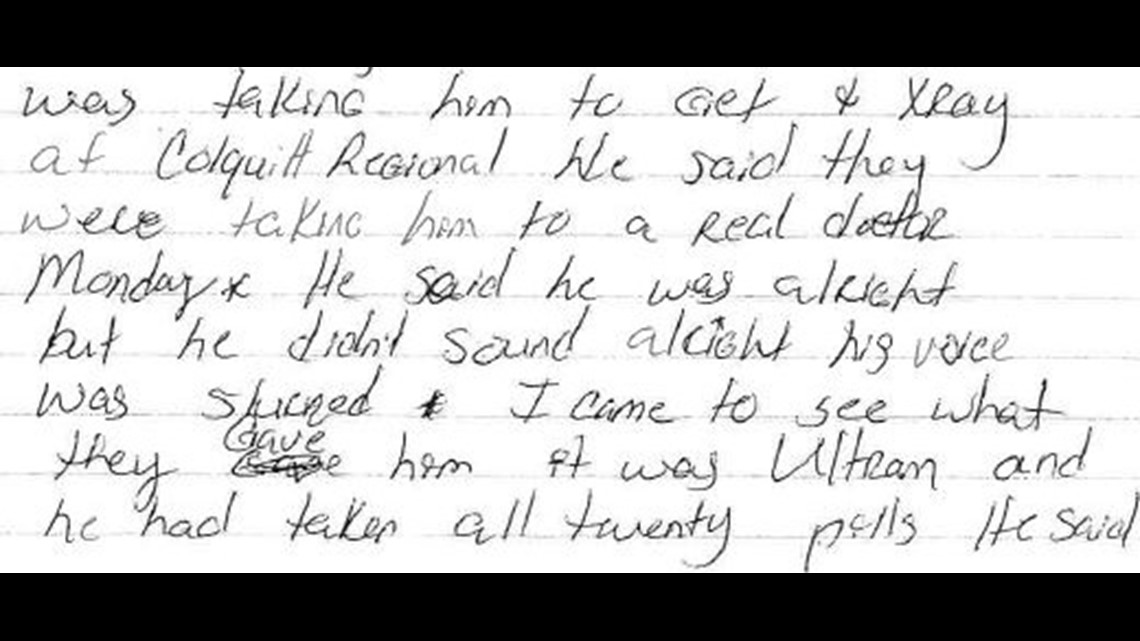 was taking him to Get & Xray
at Colquitt Regional He said they
were taking him to a real doctor
Monday * He said he was alright
but he didn't sound alright his voice
was slurred * I came to see what
they Gave him it was Ultram and
he had taken all twenty pills He said